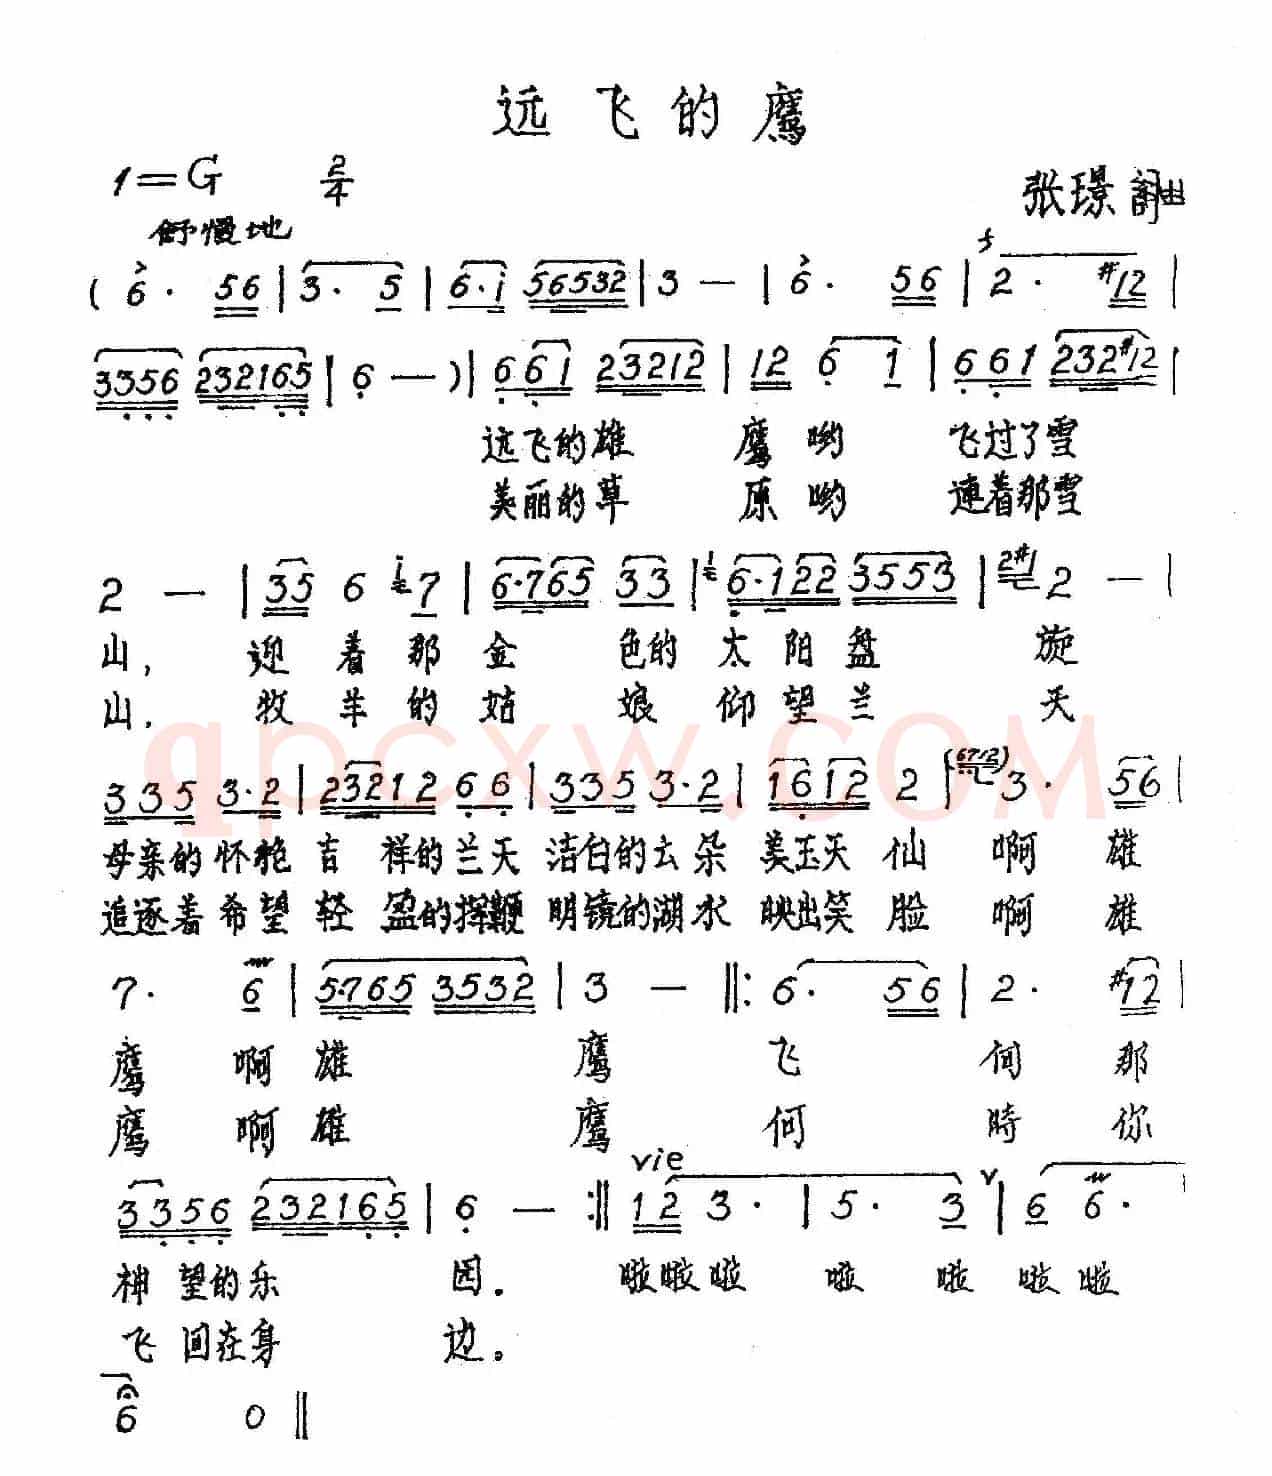 远飞的鹰
1=G 2/4
张璟 詞曲
舒慢地
( 6· 56 | 3· 5 | 6·i 56532 | 3 — | 6· 56 | 2· #12 |
3356 232165 | 6 — ) | 661 23212 | 12 6 1 | 661 232#12 |
远飞的雄 鹰哟 飞过了雪
美丽的草 原哟 連着那雪
2 — | 35 6 i7 | 6·765 33 | 1 6·122 3553 | 2#1 2 — |
山, 迎着那金 色的太阳盘 旋
山. 牧羊的姑 娘仰望兰 天
335 3·2 | 23212 66 | 335 3·2 | 1612 2 | (6712) 3· 56 |
母亲的怀抱吉 祥的兰天 洁白的云朵 美玉天仙 啊 雄
追逐着希望轻 盈的挥鞭 明镜的湖水 映出笑脸 啊 雄
7· 6 | 5·765 3532 | 3 — ‖: 6· 56 | 2· #12 |
鹰 啊雄 鹰 飞 何 那
鹰 啊雄 鹰 何 時 你
vie
3356 232165 | 6 — :‖ 12 3· | 5· 3 v | 6 6· |
神望的乐 园. 啦啦啦 啦 啦 啦啦
飞回在身 边.
6 0 ‖
qpcxw.com